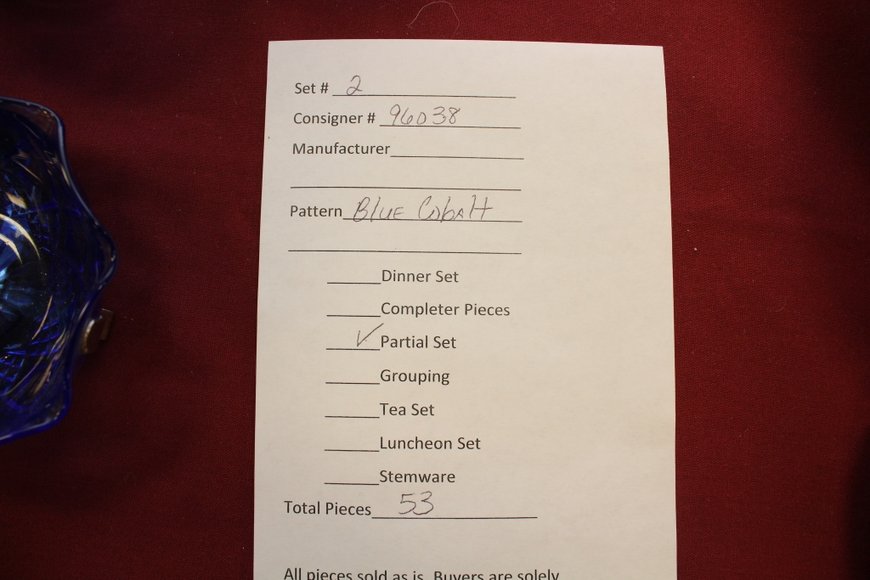 Set # 2
Consigner # 96038
Manufacturer
Pattern BLUE CobAlt
Dinner Set
Completer Pieces
✓ Partial Set
Grouping
Tea Set
Luncheon Set
Stemware
Total Pieces 53
All pieces sold as is. Buyers are solely